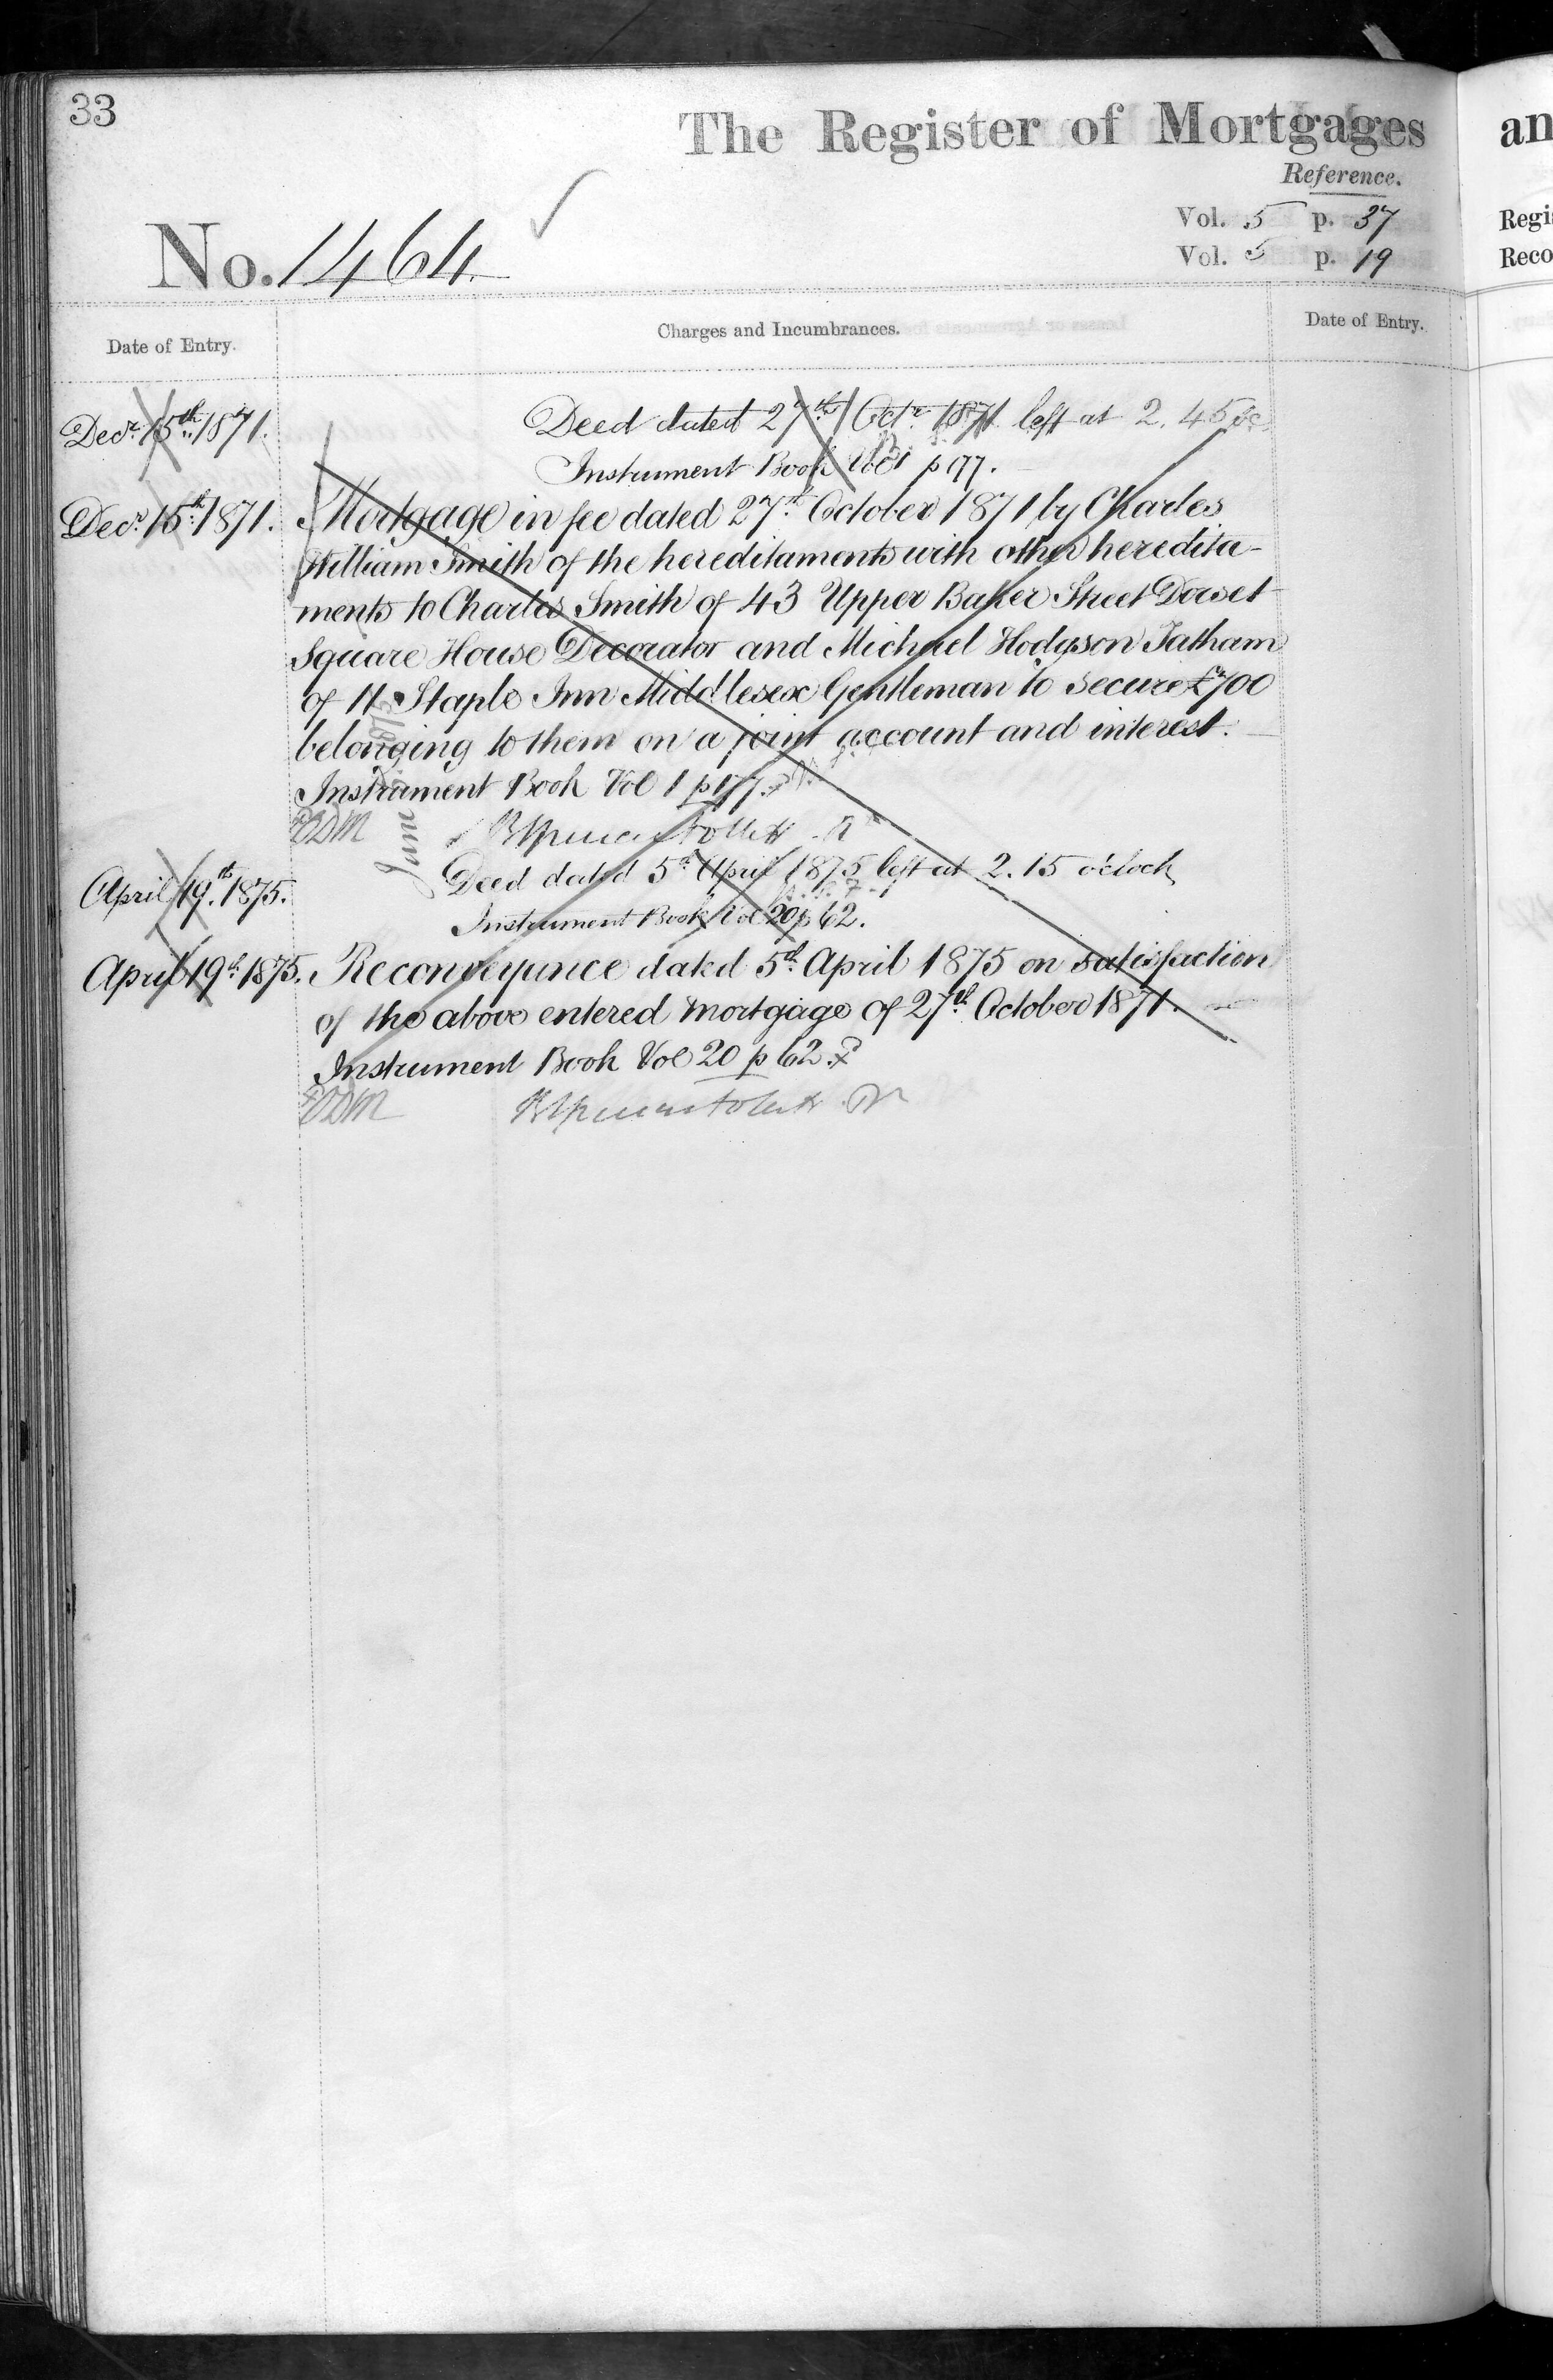 33
The Register of Mortgages
Reference.
Vol. 5 p. 37
Vol. 5 p. 19
No. 1464
Date of Entry.
Charges and Incumbrances.
Date of Entry.
an
Regi
Reco
Decr. 15th 1871. Deed dated 27th Octr. 1871 left at 2.45
Instrument Book Vol 1 p 177.
Decr. 15th 1871. Mortgage in fee dated 27th October 1871 by Charles
William Smith of the hereditaments with other heredita-
ments to Charles Smith of 43 Upper Baker Street Dorset
Square House Decorator and Michael Hodgson Tatham
of 11 Staple Inn Middlesex Gentleman to secure £700
belonging to them on a joint account and interest.
Instrument Book Vol 1 p 177.
April 19th 1875. Deed dated 5th April 1875 left at 2.15 o'clock
Instrument Book Vol 20 p 62.
April 19th 1875. Reconveyance dated 5th April 1875 on satisfaction
of the above entered mortgage of 27th October 1871.
Instrument Book Vol 20 p 62.